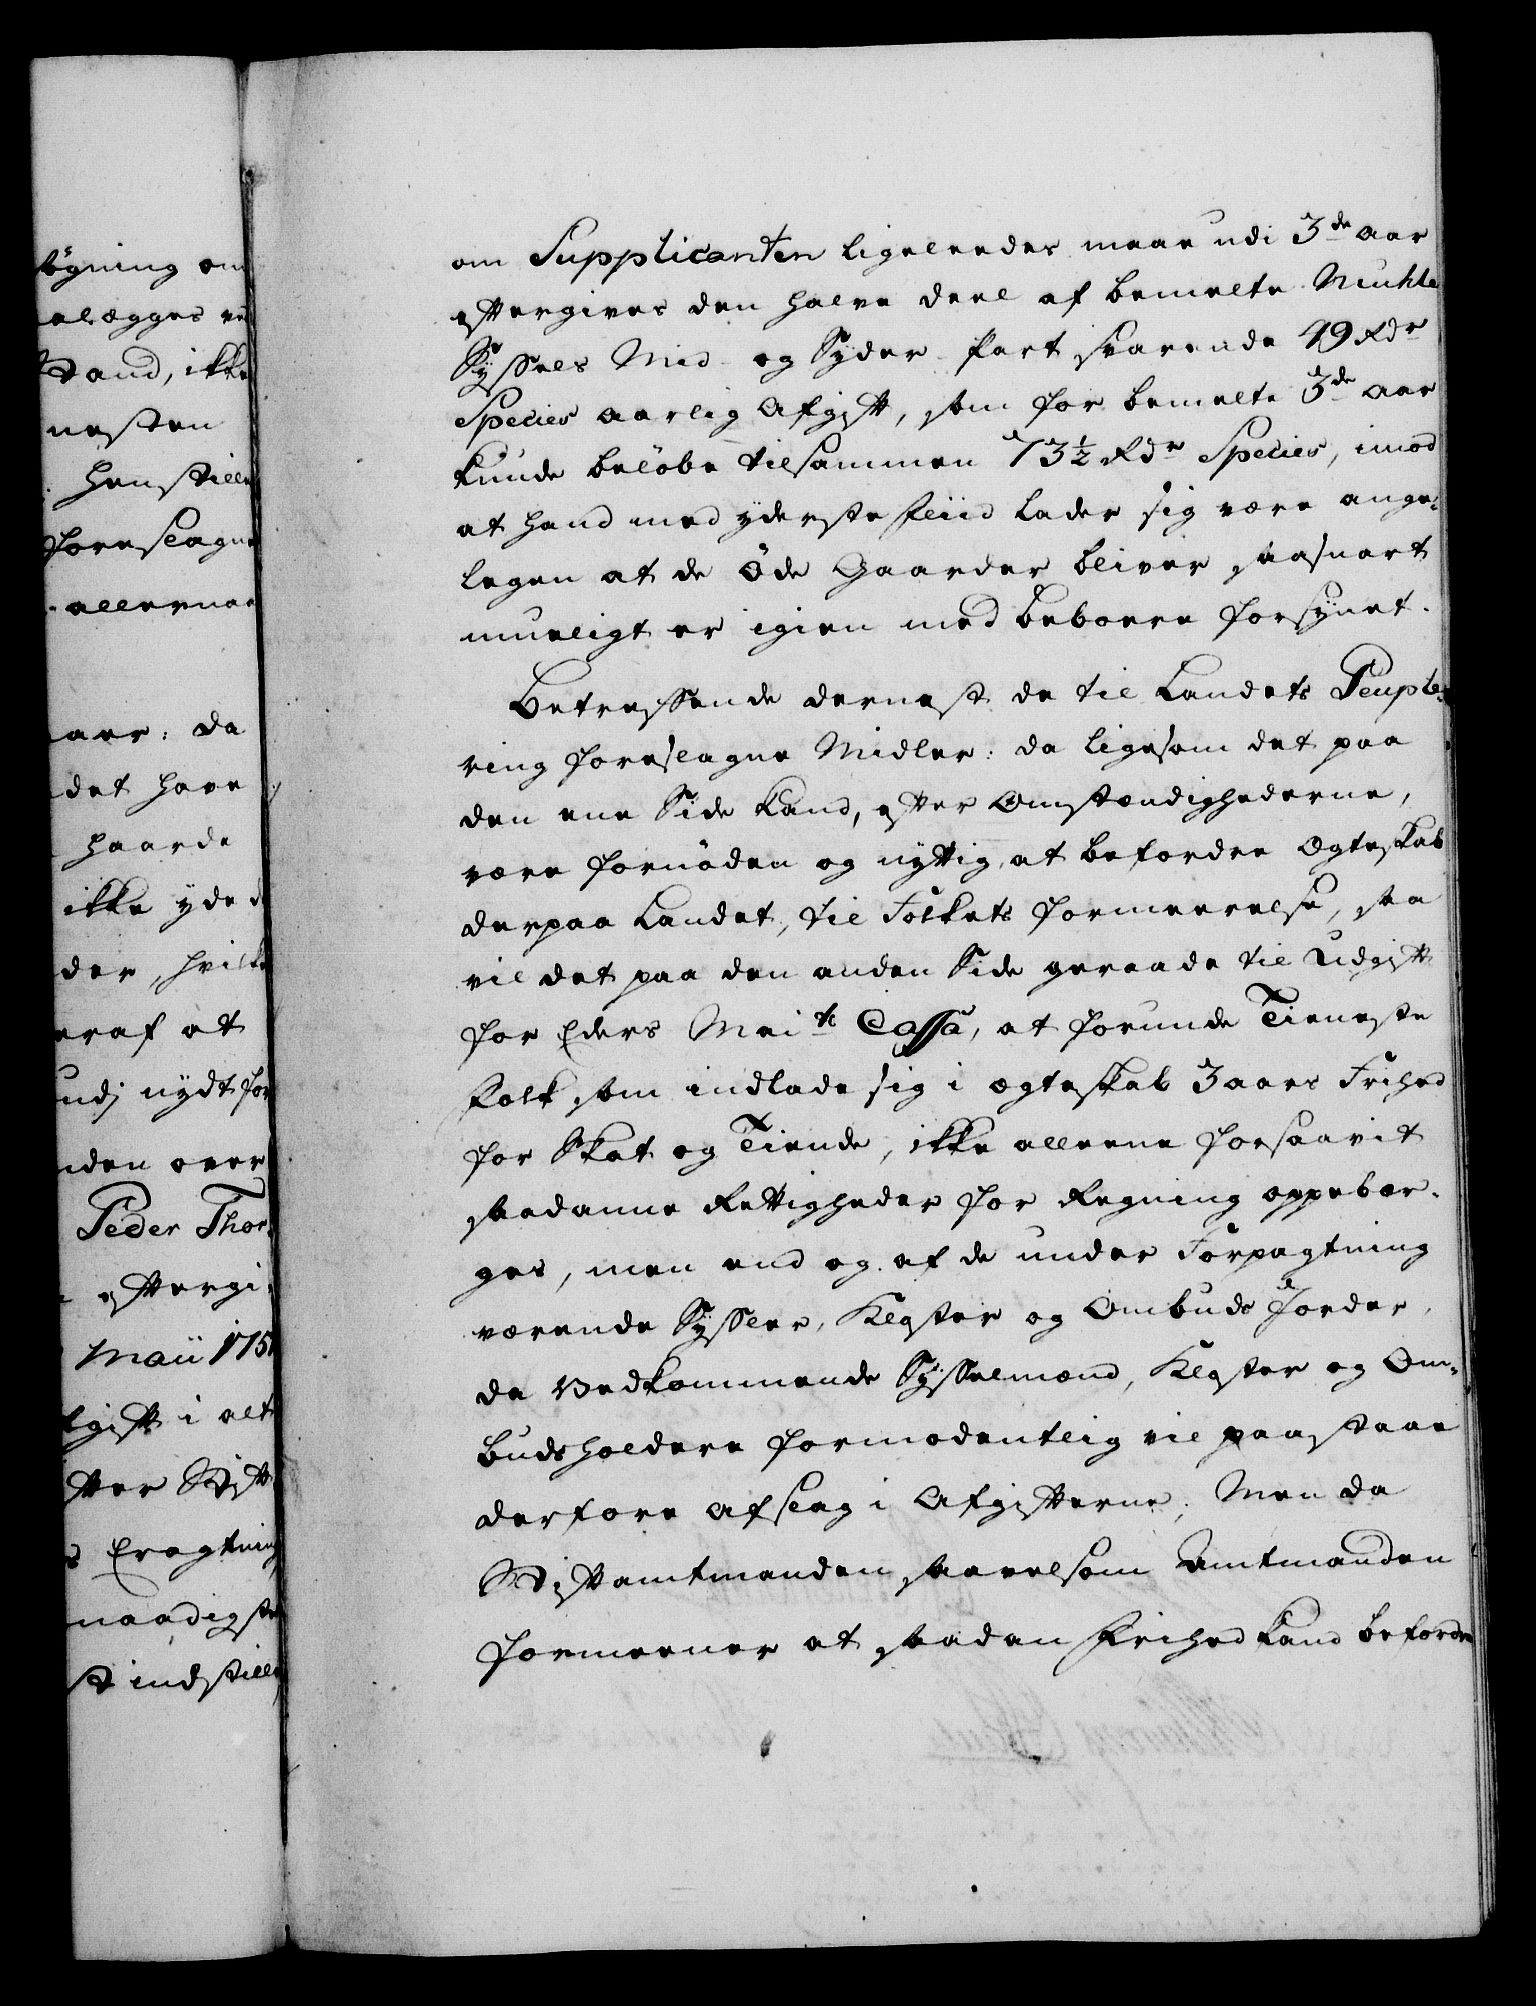 øgning om
elægges ve
Vand, ikke
næsten
henstille
foreslagne
allernaa
aar: da
det have
haarde
ikke yde d
der, hvilke
eraf at
udj nydt for
nden over
Peder Thor-
eftergi-
Maii 175
fgift i alt
fter Stift
s Eragtning
naadigste
st indstille
om Supplicanten ligeleedes maae udi 3de aar
eftergives den halve deel af bemelte Muhle
Syssels Mid- og Syder Part svarende 49 Rdr
Species aarlig Afgift, som for bemelte 3de Aar
kunde beløbe tilsammen 73½ Rdr Species, imod
at hand med yderste fliid lader sig være ange-
legen at de Öde Gaarder bliver saasnart
mueligt er igien med beboere forsynet.
Betreffende dernest de til Landets Peuple-
ring foreslagne Midler: da ligesom det paa
den ene Side kand, efter Omstændighederne,
være fornøden og nyttig, at befordre Ægteskab
derpaa Landet, til Folkets formeerelse, saa
vil det paa den anden Side geraade til Udgift
for Eders Mai.ts Cassa, at forunde Tieneste
folk som indlade sig i ægteskab 3 aars Frihed
for Skat og Tiende, ikke alleene forsaavit
saadanne Rettigheder for Regning oppebær-
ges, men end og af de under Forpagtning
værende Sysler, Kloster og Ombuds Jorder,
da Vedkommende Sysselmænd, Kloster og Om-
budsholdere formodentlig vil paastaae
derfore Afslag i Afgifterne; Men da
Stiftamtmanden saavelsom Amtmanden
formeener at saadan Frihed kand befordre